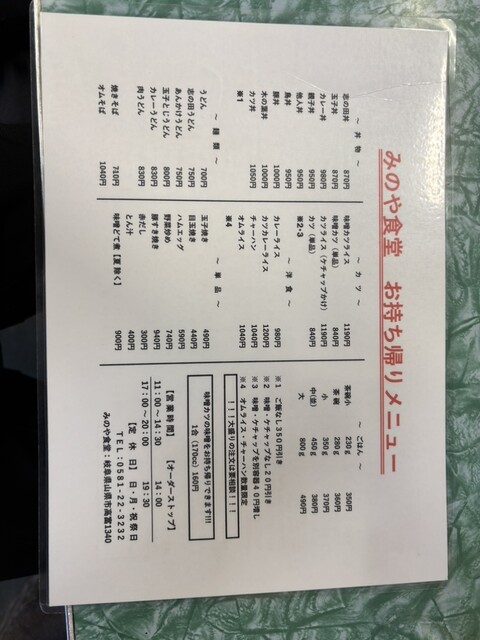 みのや食堂 お持ち帰りメニュー
～ 丼 物 ～
志の田丼 870円
玉子丼 870円
カレー丼 980円
親子丼 950円
他人丼 950円
鳥丼 950円
豚丼 1000円
木の葉丼 1000円
カツ丼 1050円
※1
～ 麺 類 ～
うどん 700円
志の田うどん 750円
あんかけうどん 750円
玉子とじうどん 800円
カレーうどん 830円
肉うどん 830円
焼きそば 710円
オムそば 1040円
～ カ ツ ～
味噌カツライス 1190円
味噌カツ（単品） 840円
カツライス（ケチャップかけ） 1190円
カツ（単品） 840円
※2・3
～ 洋 食 ～
カレーライス 980円
カツカレーライス 1200円
チャーハン 1040円
オムライス 1040円
※4
～ 単 品 ～
玉子焼き 490円
目玉焼き 440円
ハムエッグ 590円
野菜炒め 740円
豚すき焼き
赤だし 300円
とん汁 400円
味噌どて煮【夏除く】 900円
～ ごはん ～
茶碗小 230g 350円
茶 碗 280g 360円
小 350g 370円
中(並) 450g 380円
大 800g 490円
※１ ご飯なし３５０円引き
※２ 味噌・ケチャップなし２０円引き
※３ 味噌・ケチャップを別容器４０円増し
※４ オムライス・チャーハン数量限定
！！！大盛りの注文は要相談！！！
味噌カツの味噌をお持ち帰りできます!!!
1合（170cc）160円
【営業時間】 【オーダーストップ】
11：00～14：30 14：00
17：00～20：00 19：30
【定 休 日】 日・月・祝祭日
ＴＥＬ：0581-22-3232
みのや食堂：岐阜県山県市高富1340